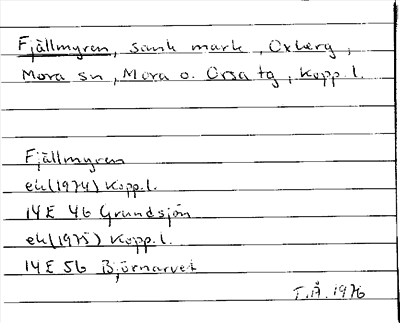 Fjällmyren, sank mark, Oxberg,
Mora sn, Mora o. Orsa tg, Kopp. l.
Fjällmyren
ek(1974) Kopp.l.
14E 4b Grundsjön
ek(1975) Kopp.l.
14E 5b Björnarvet
T.Å. 1976